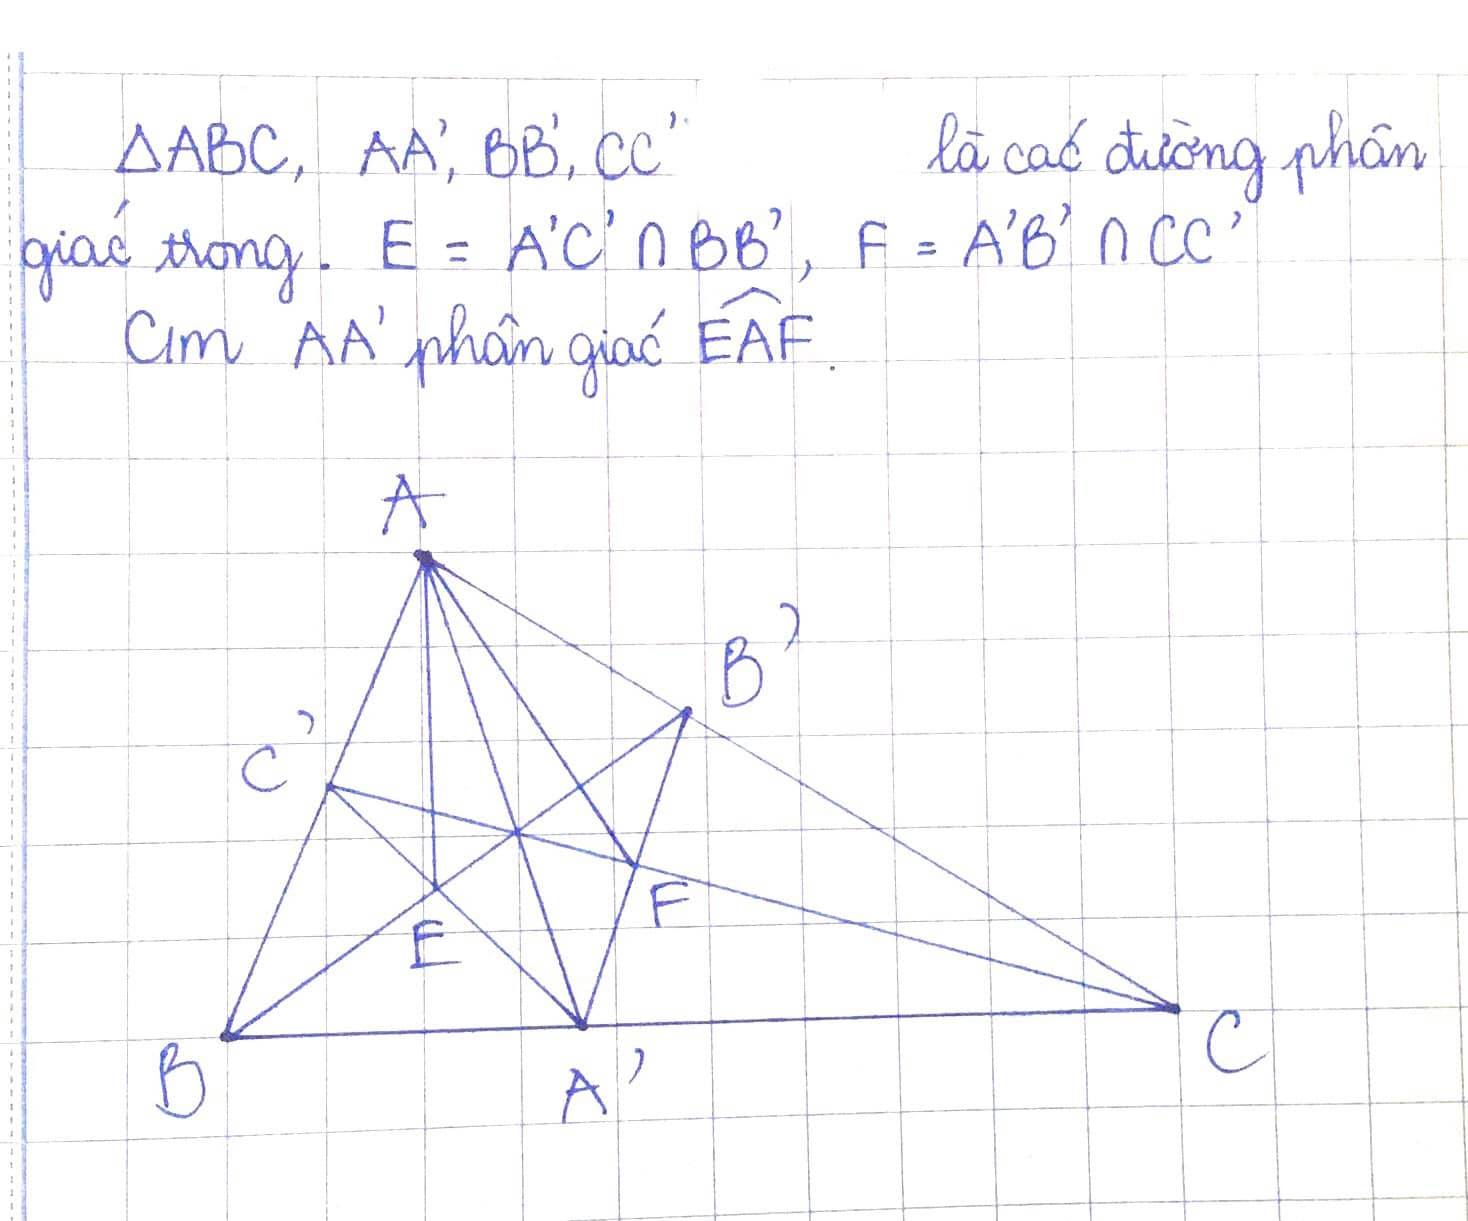 ΔABC, AA', BB', CC' là các đường phân
giác trong. E = A'C' ∩ BB', F = A'B' ∩ CC'
Cm AA' phân giác \widehat{EAF}.
A
B'
C'
F
E
B
A'
C